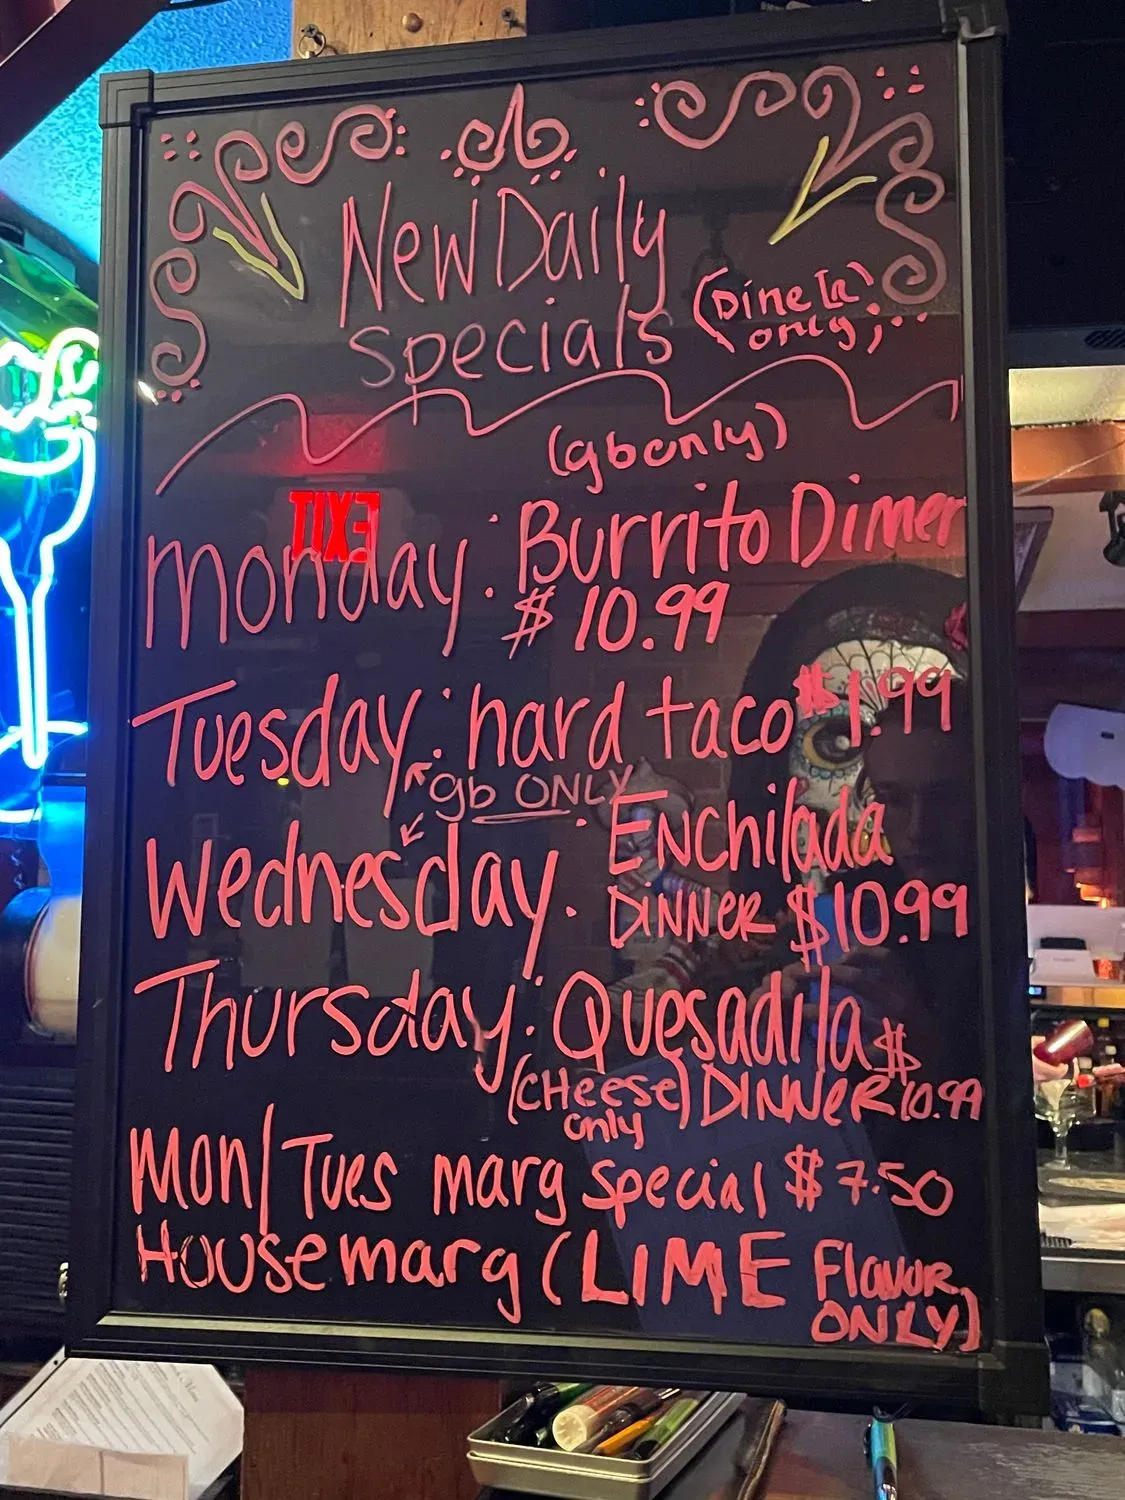 New Daily
Specials (Dine In
only)
(gb only)
Monday: Burrito Dinner
$10.99
EXIT
Tuesday: hard taco $1.99
gb ONLY
Wednesday: ENchilada
DiNNeR $10.99
Thursday: Quesadilla $
(CHeese) DINNeR 10.99
only
Mon/Tues marg special $7.50
House marg (LIME Flavor
ONLY)